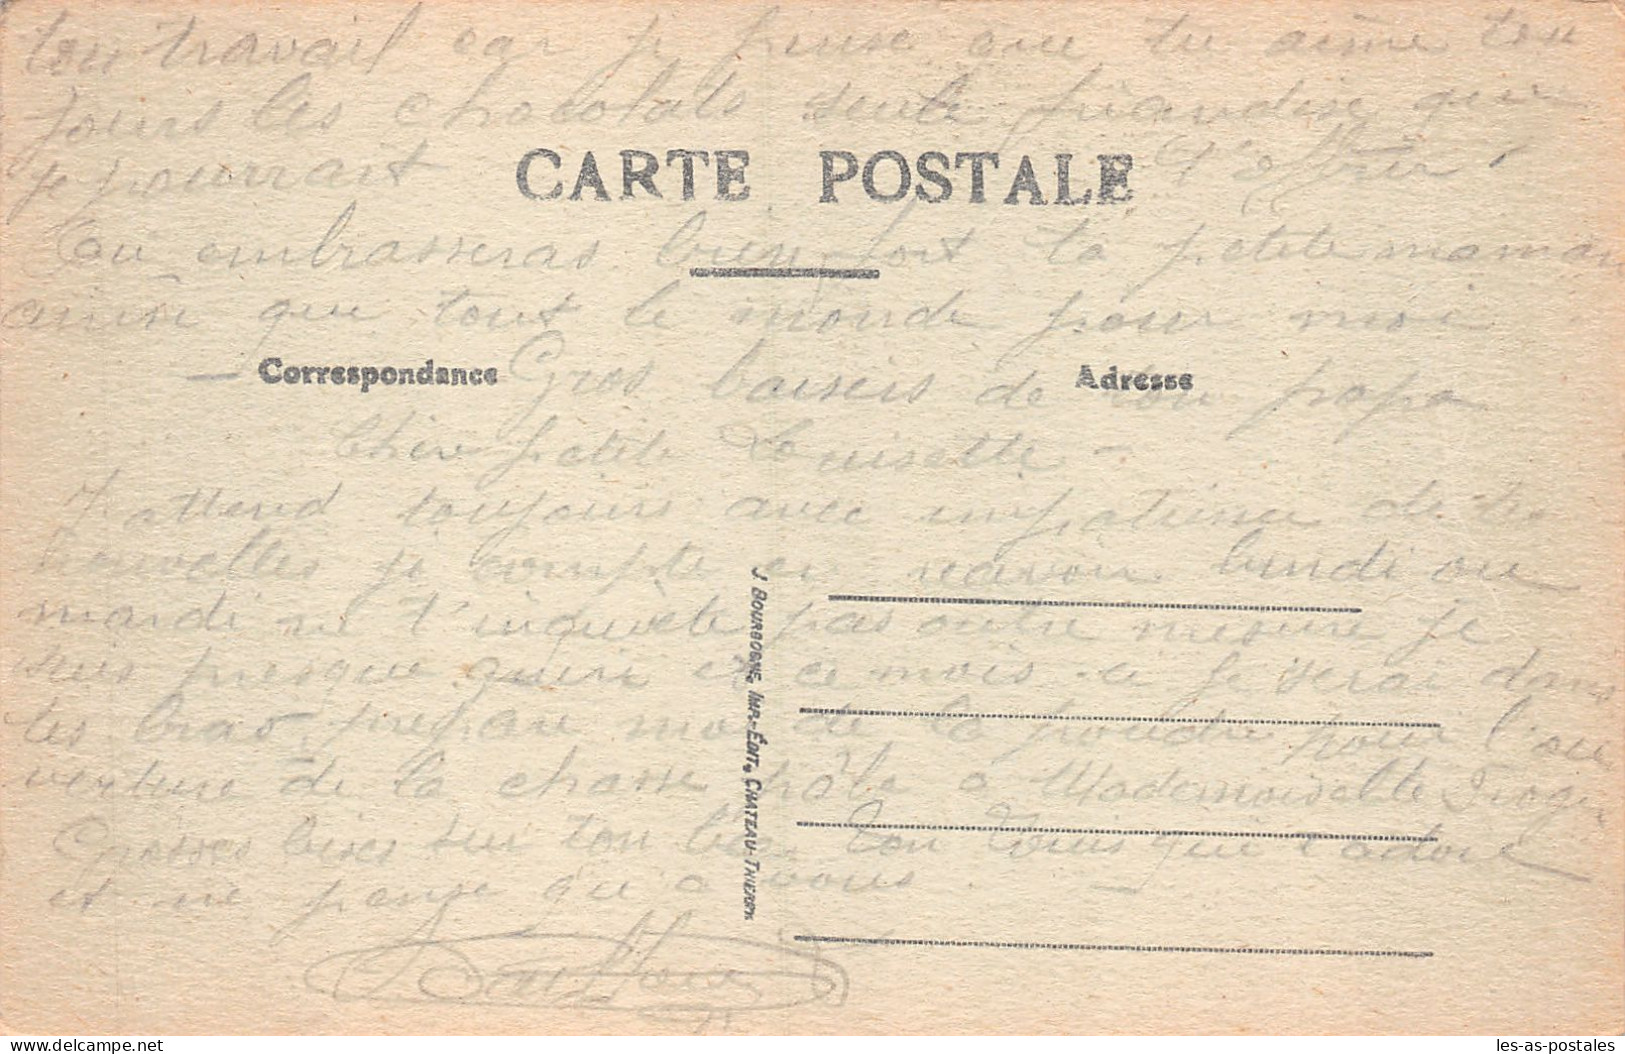 ton travail car je pense que tu aime tou
jours les chocolats seule friandise que
je pourrait t'offrir !
CARTE POSTALE
Tu embrasseras bien fort ta petite maman
ainsi que tout le monde pour moi
Correspondance
Adresse
Gros baisers de ton papa
Chère petite Louisette -
J'attend toujours avec impatience de tes
nouvelles je compte en reavoir lundi ou
mardi ne t'inquiète pas outre mesure je
suis presque guéri et ce mois ci je serai dans
tes bras prépare moi de la poudre pour l'ou
verture de la chasse à Mademoiselle
Grosses bises sur ton bec ton Louis qui t'adore
et ne pense qu'a vous.
J. BOURGOGNE, IMP.-ÉDIT., CHATEAU-THIERRY
les-as-postales.delcampe.net
les-as-postales